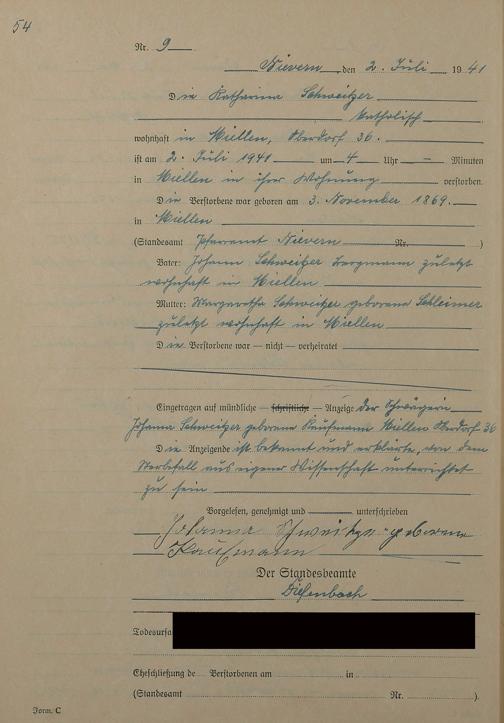 54
Nr. 9
Nievern, den 2. Juli 1941
Die Katharina Schweitzer
katholisch
wohnhaft in Miellen, Oberdorf 36.
ist am 2. Juli 1941 um 4 Uhr — Minuten
in Miellen in ihrer Wohnung verstorben.
Die Verstorbene war geboren am 3. November 1869.
in Miellen
(Standesamt Pfarramt Nievern Nr. )
Vater: Johann Schweitzer Bergmann zuletzt
wohnhaft in Miellen
Mutter: Margaretha Schweitzer geborene Schleimer
zuletzt wohnhaft in Miellen
Die Verstorbene war — nicht — verheiratet
Eingetragen auf mündliche — schriftliche — Anzeige der Schwägerin
Johanna Schweitzer geborene Kaufmann Miellen Oberdorf 36
Die Anzeigende ist bekannt und erklärte, von dem
Sterbefall aus eigener Wissenschaft unterrichtet
zu sein
Vorgelesen, genehmigt und unterschrieben
Johanna Schweitzer geborene
Kaufmann
Der Standesbeamte
Diefenbach
Eheschließung de Verstorbenen am in
(Standesamt Nr. ).
Form. C